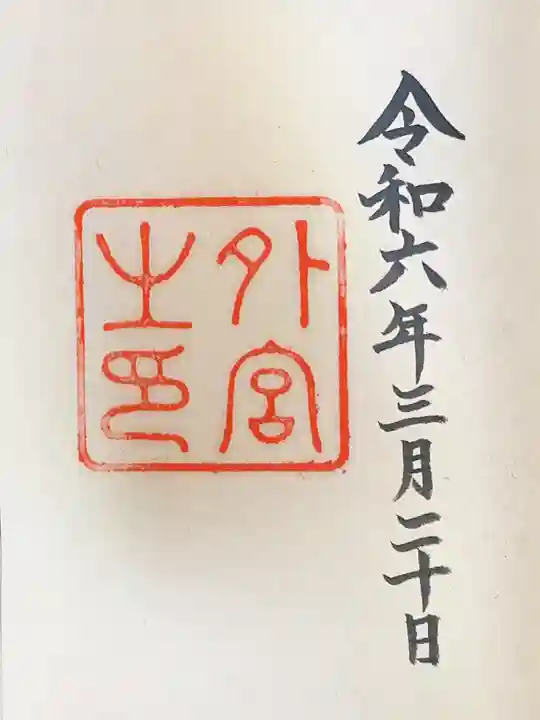 令和六年三月二十日
外宮
之印